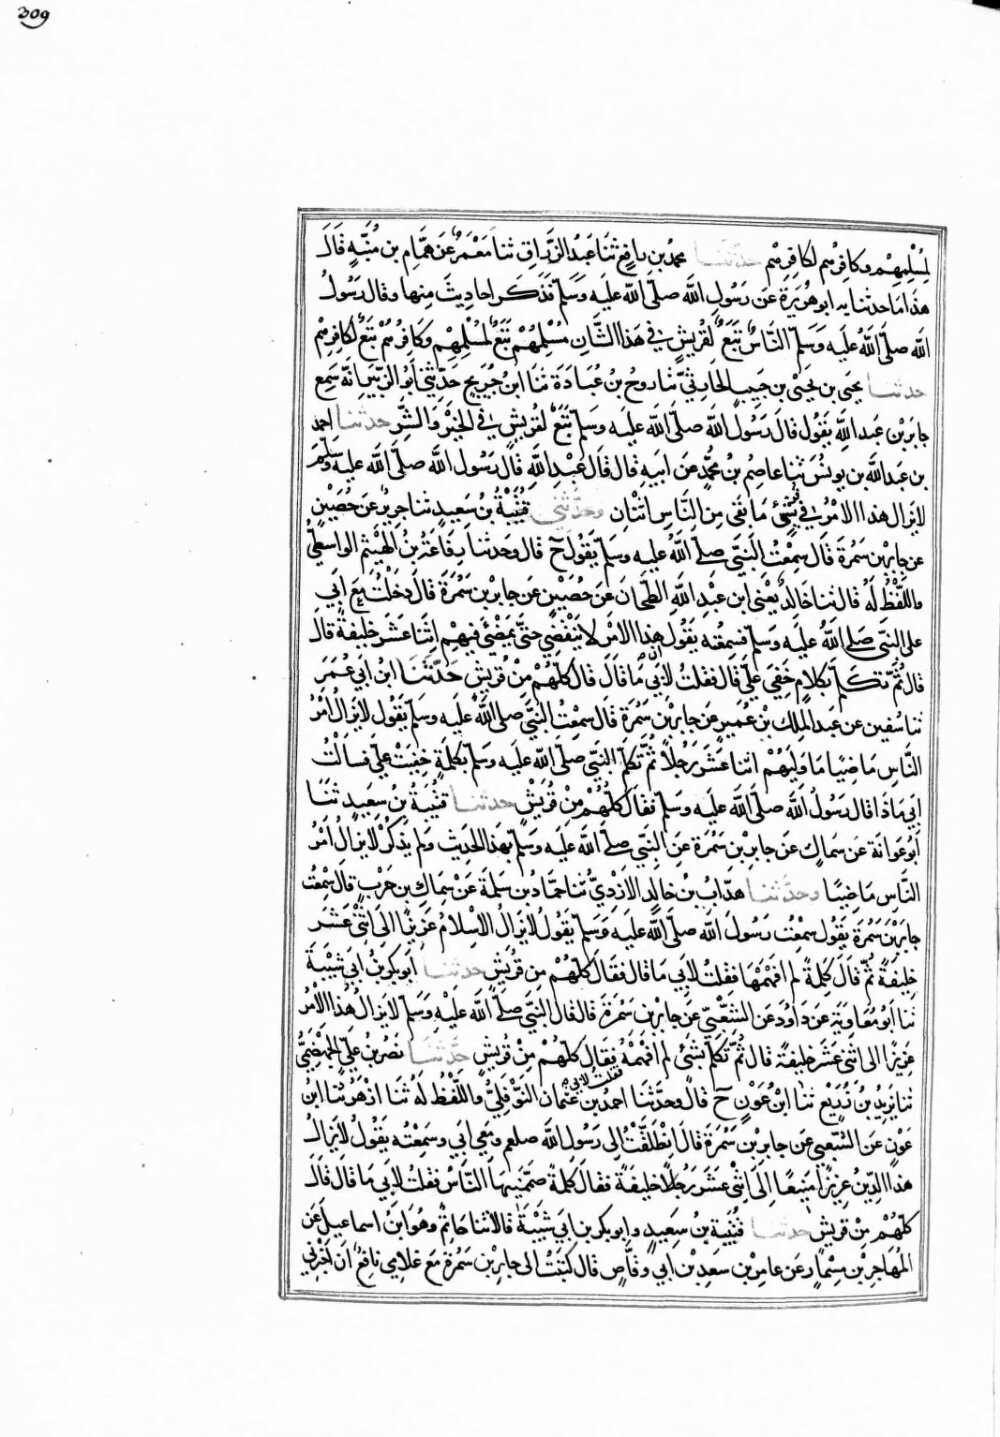 309
لمسلمهم وكافرهم لكافرهم حدثنا محمد بن رافع ثنا عبد الرزاق ثنا معمر عن همام بن منبه قال
هذا ما حدثنا به ابو هريرة عن رسول الله صلى الله عليه وسلم فذكر احاديث منها وقال رسول
الله صلى الله عليه وسلم الناس تبع لقريش في هذا الشان مسلمهم تبع لمسلمهم وكافرهم تبع لكافرهم
حدثنا يحيى بن يحيى بن حبيب الحارثي ثنا روح بن عبادة ثنا ابن جريج حدثني ابو الزبير انه سمع
جابر بن عبد الله يقول قال رسول الله صلى الله عليه وسلم تبع لقريش في الخير والشر حدثنا احمد
بن عبد الله بن يونس ثنا عاصم بن محمد عن ابيه قال قال عبد الله قال رسول الله صلى الله عليه وسلم
لا يزال هذا الامر في قريش ما بقي من الناس اثنان وحدثني قتيبة بن سعيد ثنا جرير عن حصين
عن جابر بن سمرة قال سمعت النبي صلى الله عليه وسلم يقول ح قال وحدثنا رفاعة بن الهيثم الواسطي
واللفظ له قال ثنا خالد يعني ابن عبد الله الطحان عن حصين عن جابر بن سمرة قال دخلت مع ابي
على النبي صلى الله عليه وسلم فسمعته يقول هذا الامر لا ينقضي حتى يمضي فيهم اثنا عشر خليفة قال
قال ثم تكلم بكلام خفي علي قال فقلت لابي ما قال قال كلهم من قريش حدثنا ابن ابي عمر
ثنا سفين عن عبد الملك بن عمير عن جابر بن سمرة قال سمعت النبي صلى الله عليه وسلم يقول لا يزال امر
الناس ماضيا ما وليهم اثنا عشر رجلا ثم تكلم النبي صلى الله عليه وسلم بكلمة خفيت علي فسالت
ابي ماذا قال رسول الله صلى الله عليه وسلم فقال كلهم من قريش حدثنا قتيبة بن سعيد ثنا
ابو عوانة عن سماك عن جابر بن سمرة عن النبي صلى الله عليه وسلم بهذا الحديث ولم يذكر لا يزال امر
الناس ماضيا وحدثنا هداب بن خالد الازدي ثنا حماد بن سلمة عن سماك بن حرب قال سمعت
جابر بن سمرة يقول سمعت رسول الله صلى الله عليه وسلم يقول لا يزال الاسلام عزيزا الى اثني عشر
خليفة ثم قال كلمة لم افهمها فقلت لابي ما قال فقال كلهم من قريش حدثنا ابو بكر بن ابي شيبة
ثنا ابو معاوية عن داود عن الشعبي عن جابر بن سمرة قال قال النبي صلى الله عليه وسلم لا يزال هذا الامر
عزيزا الى اثني عشر خليفة قال ثم تكلم بشئ لم افهمه فقلت لابي فقال كلهم من قريش حدثنا نصر بن علي الجهضمي
ثنا يزيد بن زريع ثنا ابن عون ح قال وحدثنا احمد بن عثمان النوفلي واللفظ له ثنا ازهر ثنا ابن
عون عن الشعبي عن جابر بن سمرة قال انطلقت الى رسول الله صلعم ومعي ابي وسمعته يقول لا يزال
هذا الدين عزيزا منيعا الى اثني عشر رجلا خليفة فقال كلمة صمنيها الناس فقلت لابي ما قال قال
كلهم من قريش حدثنا قتيبة بن سعيد وابو بكر بن ابي شيبة قالا ثنا حاتم وهو ابن اسماعيل عن
المهاجر بن مسمار عن عامر بن سعد بن ابي وقاص قال كتبت الى جابر بن سمرة مع غلامي نافع ان اخبرني